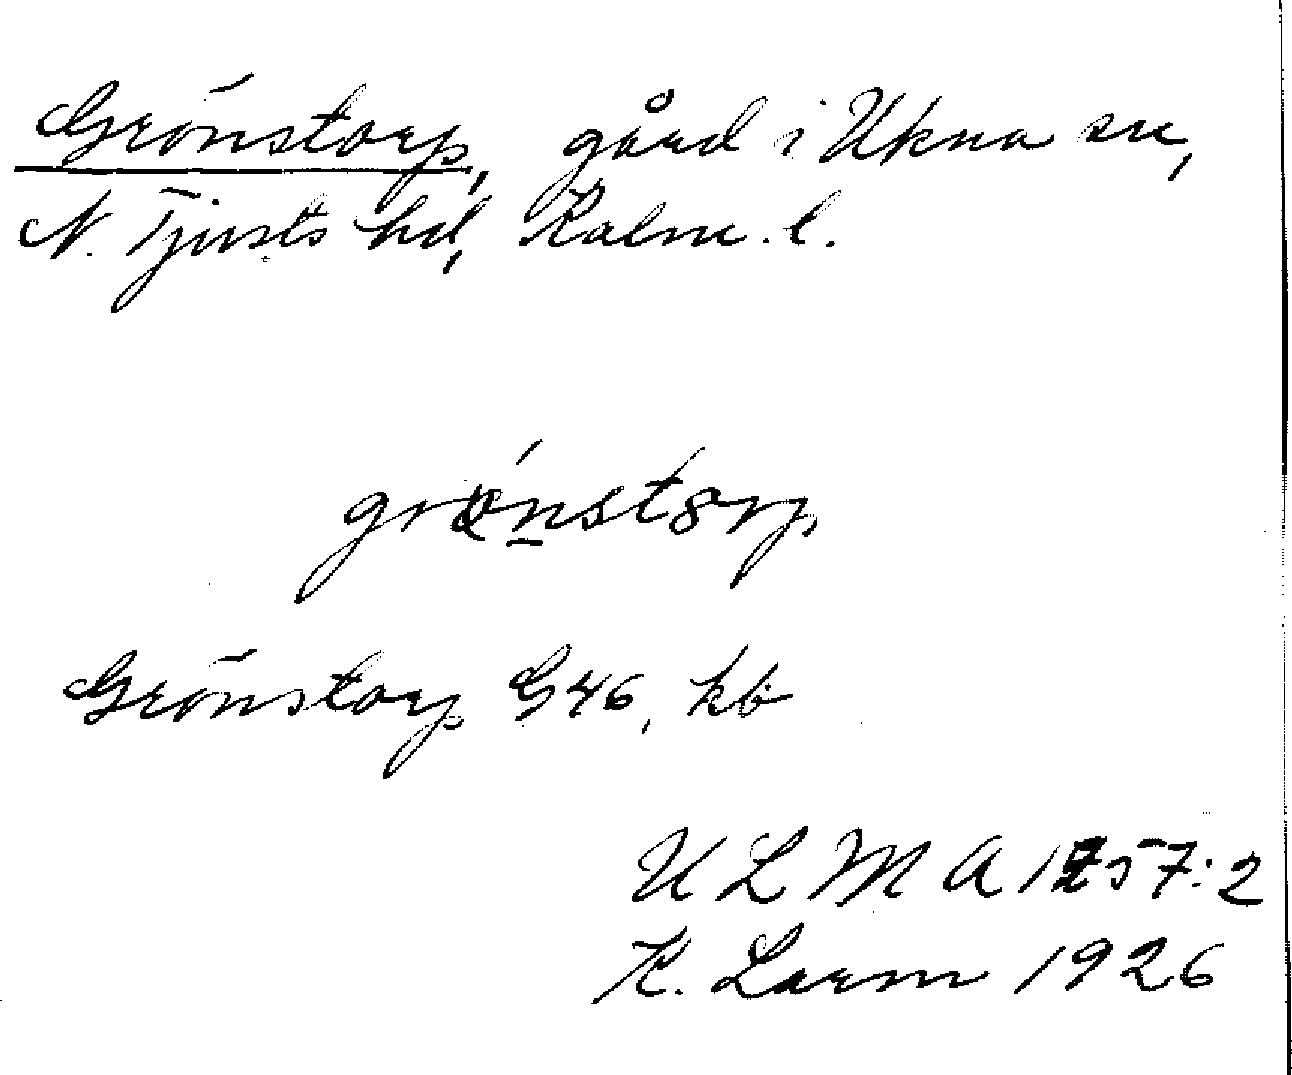 Grönstorp, gård i Ukna sn,
N. Tjusts hd, Kalm. l.
grǿnstorp
Grönstorp G46, kb
U L M A 1757:2
K. Larm 1926